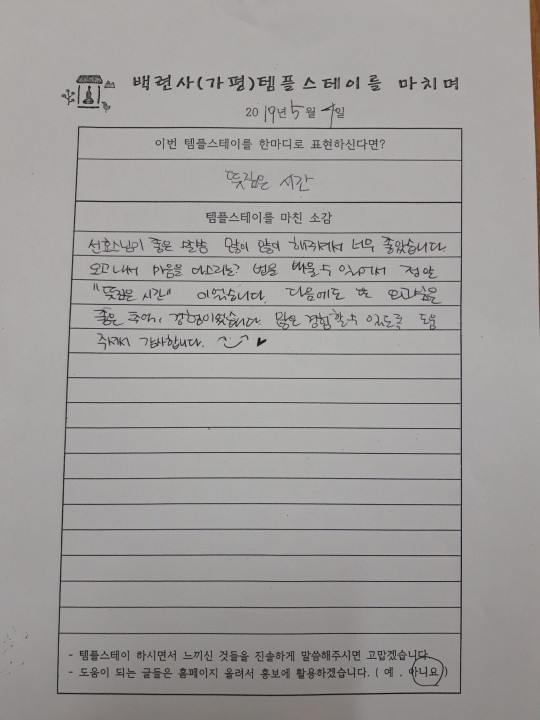 백련사(가평)템플스테이를 마치며
2019년 5월 4일
이번 템플스테이를 한마디로 표현하신다면?
뜻깊은 시간
템플스테이를 마친 소감
좋은 말씀 많이 많이 해주셔서 너무 좋았습니다.
마음을 다스리는 법을 배울 수 있어서 정말
"뜻깊은 시간" 이었습니다. 다음에도 또 오고싶은
좋은 추억, 경험이었습니다. 많은 경험할 수 있도록 도움
주셔서 감사합니다.
- 템플스테이 하시면서 느끼신 것들을 진솔하게 말씀해주시면 고맙겠습니다.
- 도움이 되는 글들은 홈페이지 올려서 홍보에 활용하겠습니다. ( 예 . 아니요 )